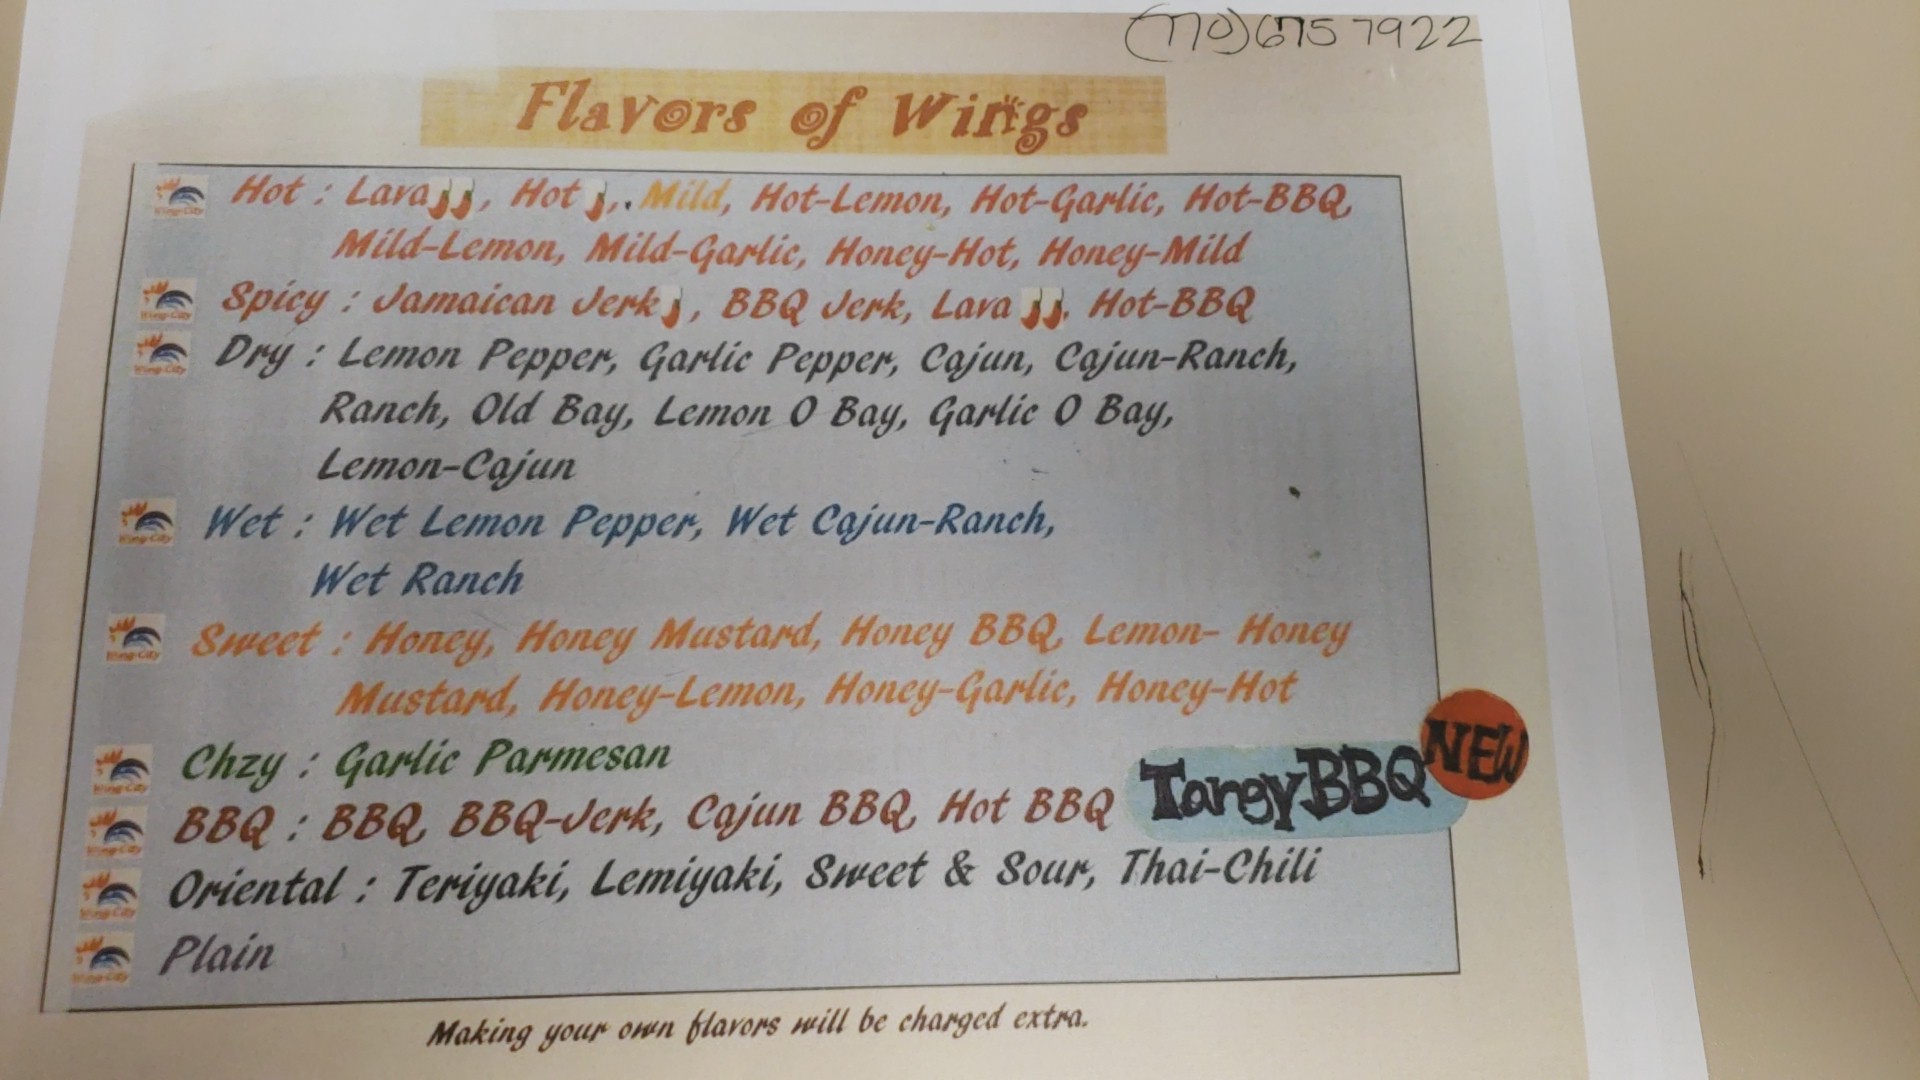 (770)675 7922
Flavors of Wings
Hot : Lava, Hot, . Mild, Hot-Lemon, Hot-Garlic, Hot-BBQ,
Mild-Lemon, Mild-Garlic, Honey-Hot, Honey-Mild
Spicy : Jamaican Jerk, BBQ Jerk, Lava, Hot-BBQ
Dry : Lemon Pepper, Garlic Pepper, Cajun, Cajun-Ranch,
Ranch, Old Bay, Lemon O Bay, Garlic O Bay,
Lemon-Cajun
Wet : Wet Lemon Pepper, Wet Cajun-Ranch,
Wet Ranch
Sweet : Honey, Honey Mustard, Honey BBQ, Lemon- Honey
Mustard, Honey-Lemon, Honey-Garlic, Honey-Hot
Chzy : Garlic Parmesan
BBQ : BBQ, BBQ-Jerk, Cajun BBQ, Hot BBQ Tangy BBQ NEW
Oriental : Teriyaki, Lemiyaki, Sweet & Sour, Thai-Chili
Plain
Making your own flavors will be charged extra.
Wing-City
Wing-City
Wing-City
Wing-City
Wing-City
Wing-City
Wing-City
Wing-City
Wing-City